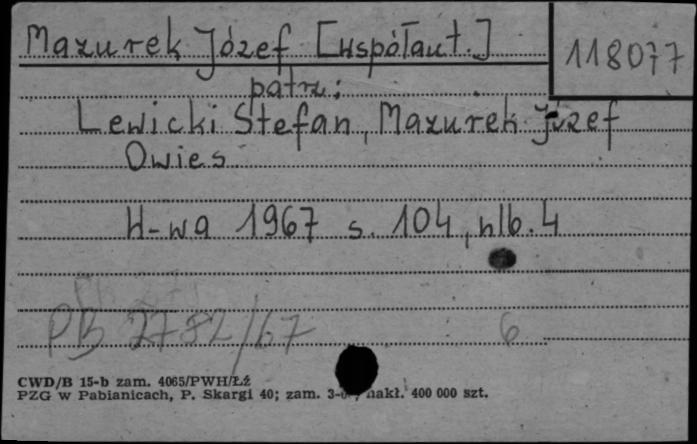 Mazurek Józef [współaut.]
118077
patrz:
Lewicki Stefan, Mazurek Józef
Owies
W-wa 1967 s. 104, nlb. 4
PB 2782/67 6
CWD/B 15-b zam. 4065/PWH/Łź
PZG w Pabianicach, P. Skargi 40; zam. nakł. 400 000 szt.